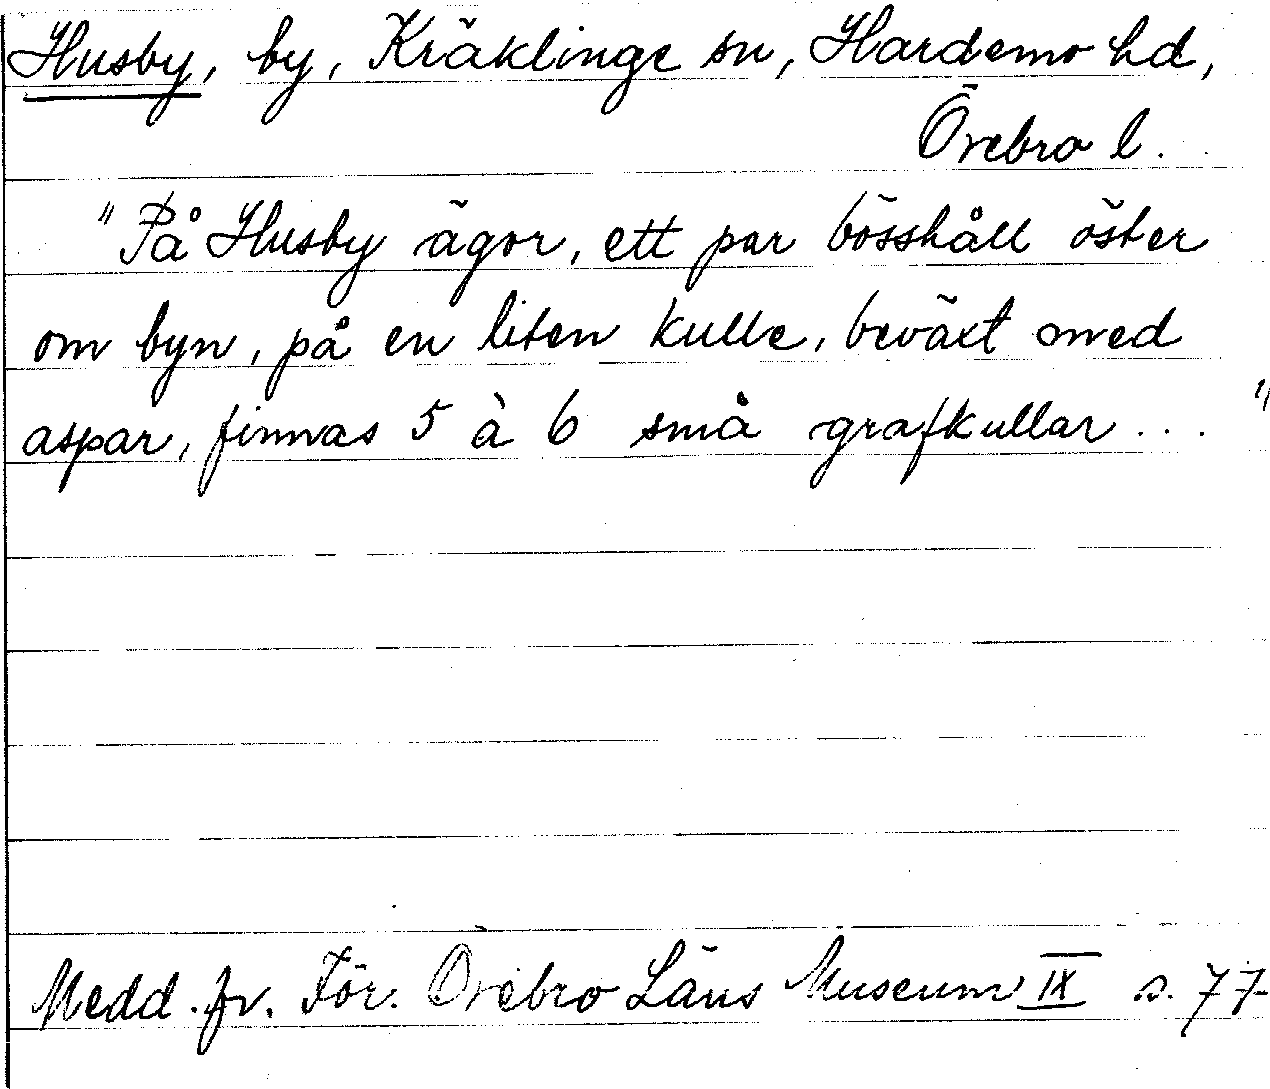 Husby, by, Kräklinge sn, Hardemo hd,
Örebro l.
"På Husby ägor, ett par bösshåll öster
om byn, på en liten kulle, beväxt med
aspar, finnas 5 à 6 små grafkullar... "
Medd. fr. För. Örebro Läns Museum IX s. 77